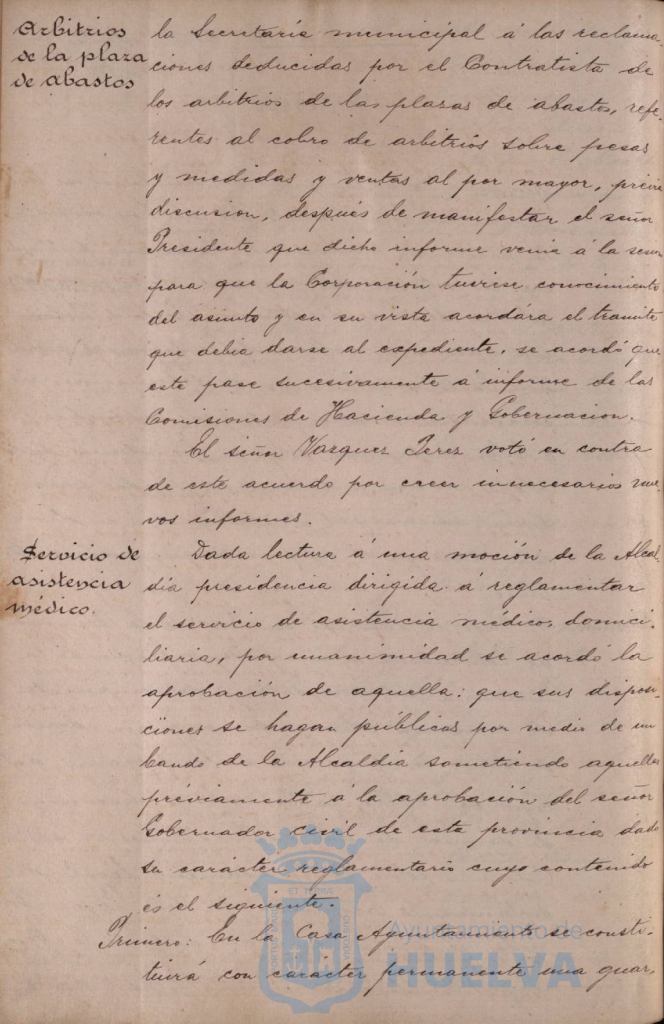 Arbitrios
de la plaza
de abastos
la Secretaría municipal á las reclama-
ciones deducidas por el Contratista de
los arbitrios de las plazas de abastos, refe-
rentes al cobro de arbitrios sobre pesas
y medidas y ventas al por mayor, prévia
discusion, después de manifestar el señor
Presidente que dicho informe venia á la sesion
para que la Corporación tuviese conocimiento
del asunto y en su vista acordára el tramite
que debia darse al expediente, se acordó que
este pase sucesivamente á informe de las
Comisiones de Hacienda y Gobernacion.
El señor Vazquez Perez votó en contra
de este acuerdo por creer innecesarios nue-
vos informes.
Servicio de
asistencia
médico.
Dada lectura á una moción de la Alcal-
día presidencia dirigida á reglamentar
el servicio de asistencia médico, domici-
liaria, por unanimidad se acordó la
aprobación de aquella: que sus disposi-
ciones se hagan públicas por medio de un
bando de la Alcaldia sometiendo aquellas
préviamente á la aprobación del señor
Gobernador civil de esta provincia dado
su carácter reglamentario cuyo contenido
és el siguiente.
Primero: En la Casa Ayuntamiento se consti-
tuirá con carácter permanente una guar-
Ayuntamiento de
HUELVA